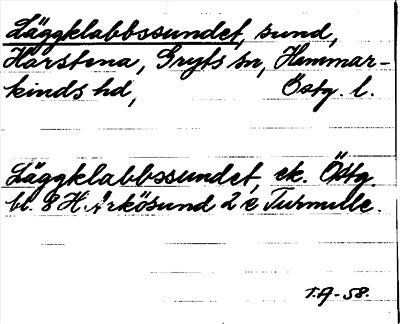 Läggklabbssundet, sund,
Harstena, Gryts sn, Hammar-
kinds hd, Östg. l.
Läggklabbssundet, ek. Östg.
bl. 8 H. Arkösund 2 e Turmulle.
T.A-58.